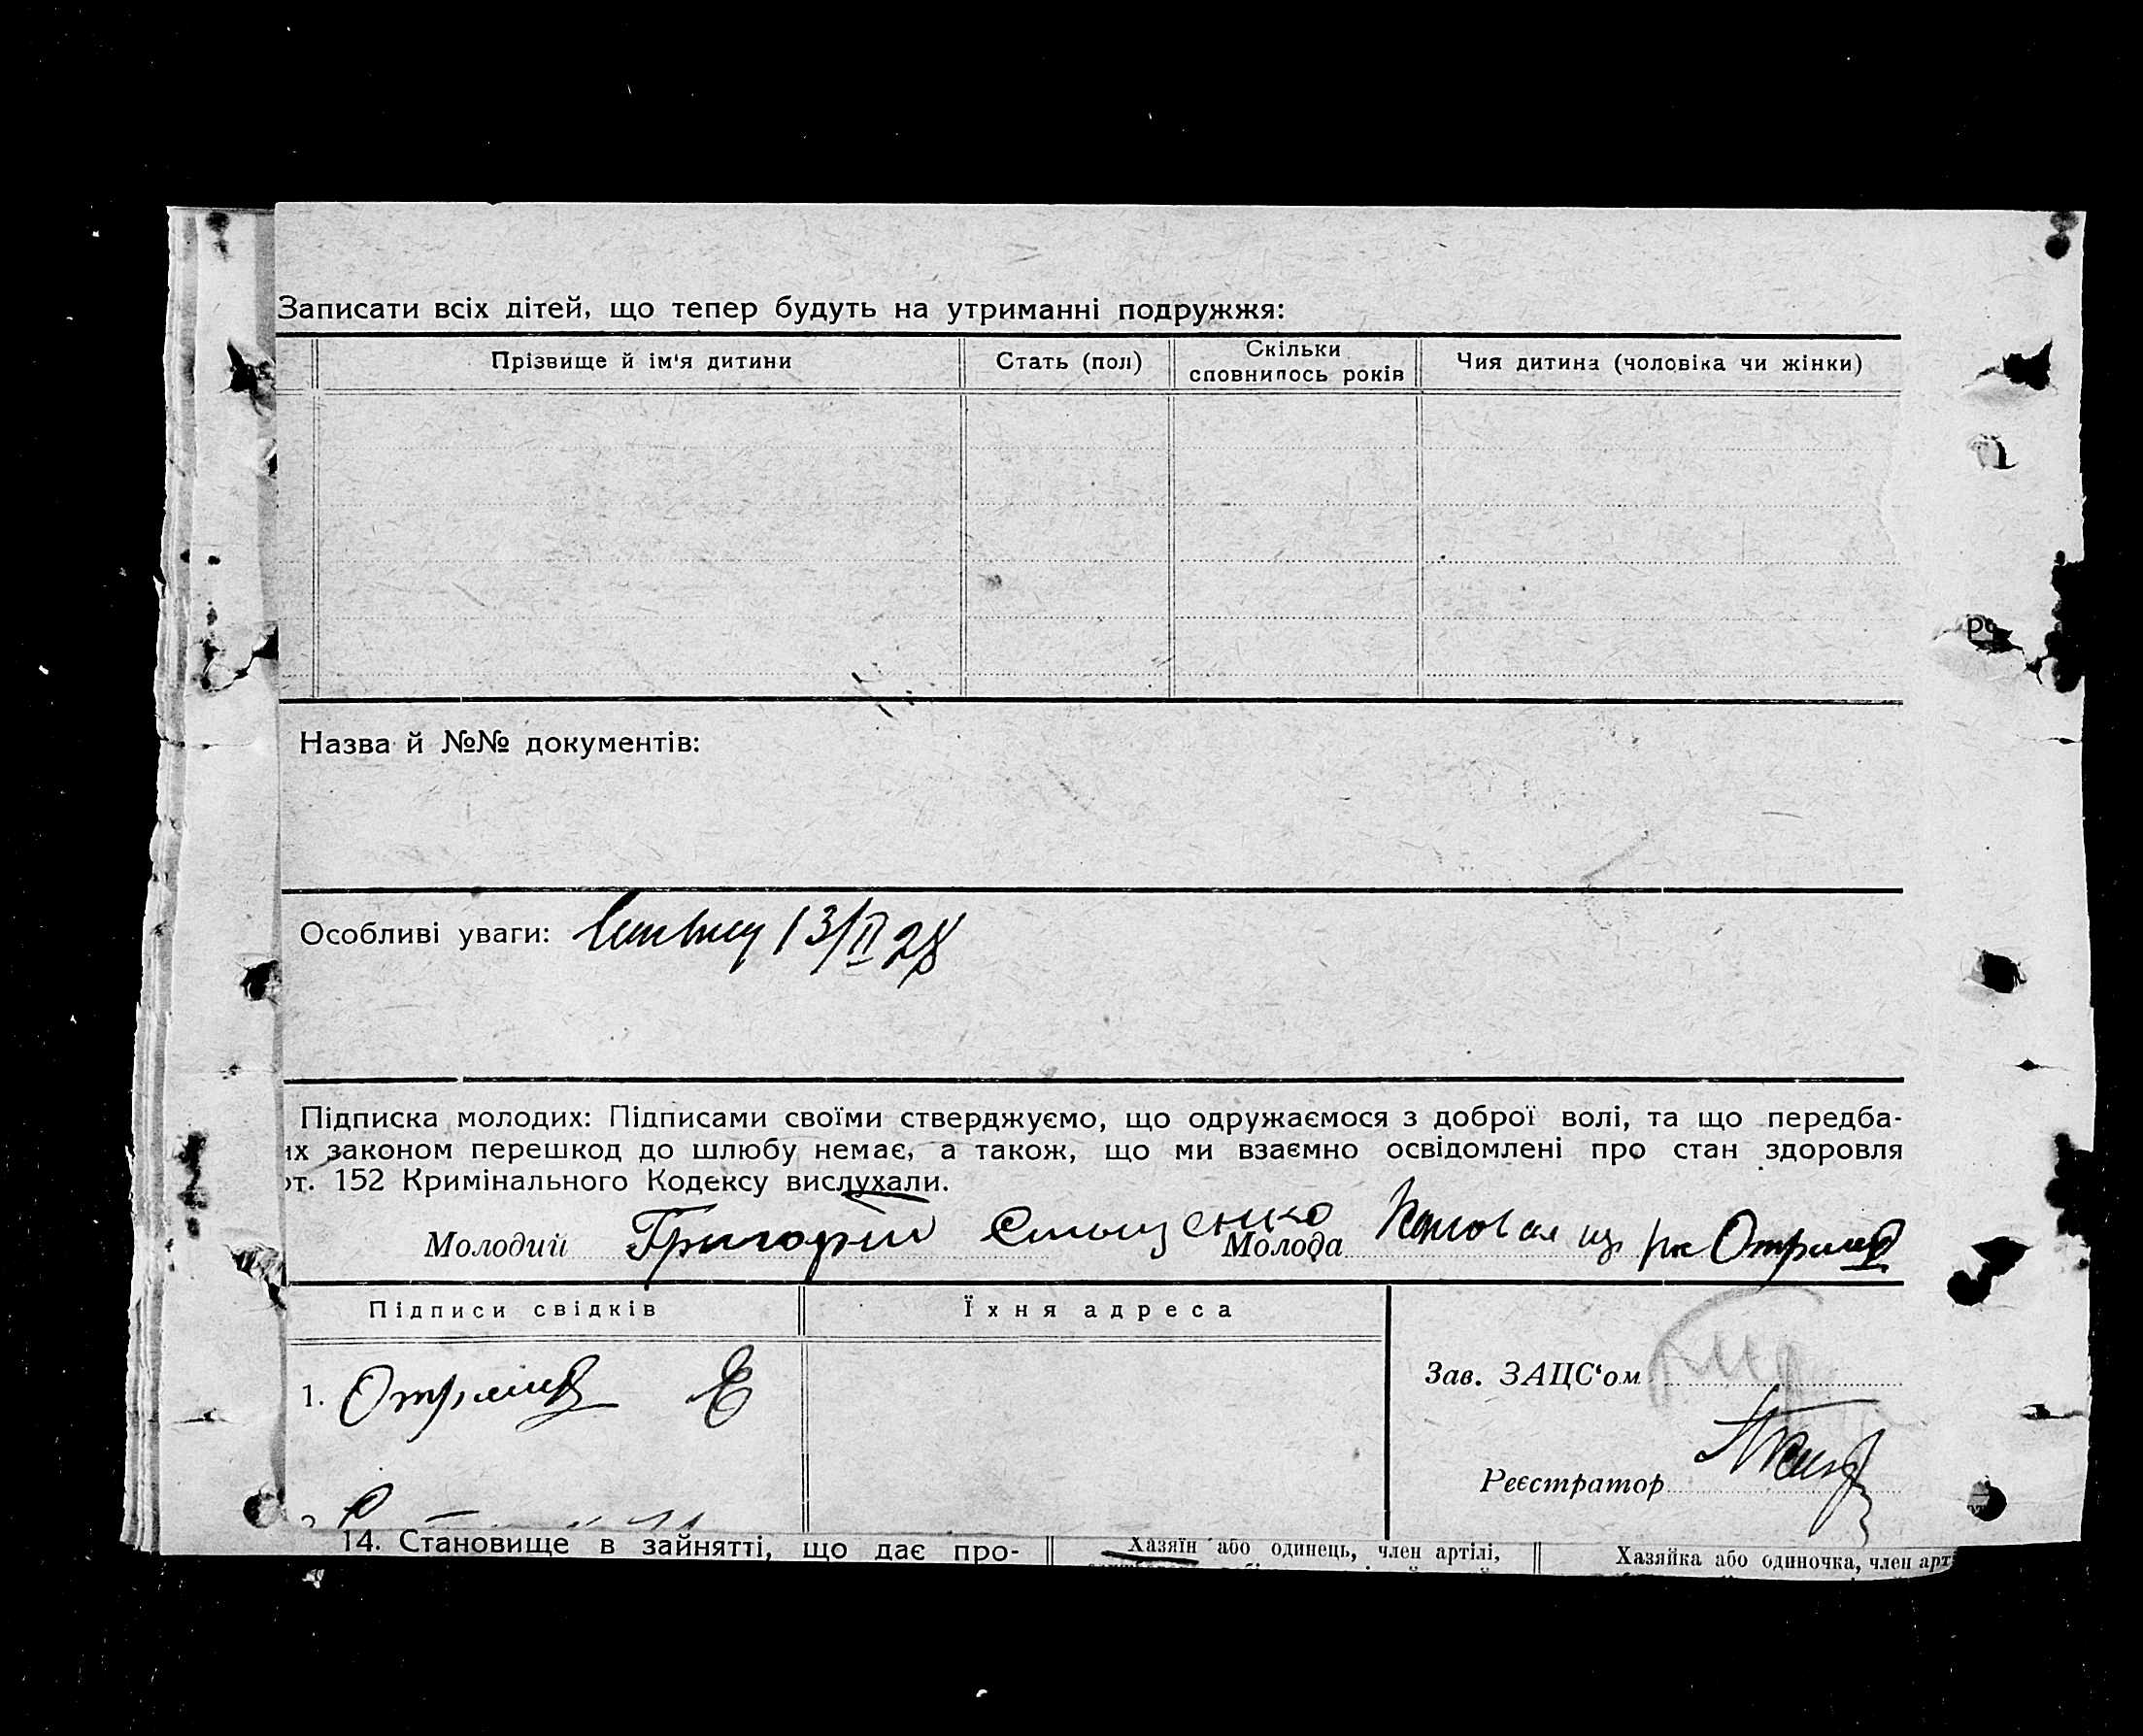 Записати всіх дітей, що тепер будуть на утриманні подружжя:
Прізвище й ім'я дитини
Стать (пол)
Скільки сповнилось років
Чия дитина (чоловіка чи жінки)
Назва й №№ документів:
Особливі уваги: 13/II 28
Підписка молодих: Підписами своїми стверджуємо, що одружаємося з доброї волі, та що передба-
их законом перешкод до шлюбу немає, а також, що ми взаємно освідомлені про стан здоровля
от. 152 Кримінального Кодексу вислухали.
Молодий Григорій Молода
Підписи свідків
Їхня адреса
1.
Зав. ЗАЦС'ом
Реєстратор
14. Становище в зайнятті, що дає про-
Хазяїн або одинець, член артілі,
Хазяйка або одиночка, член арт